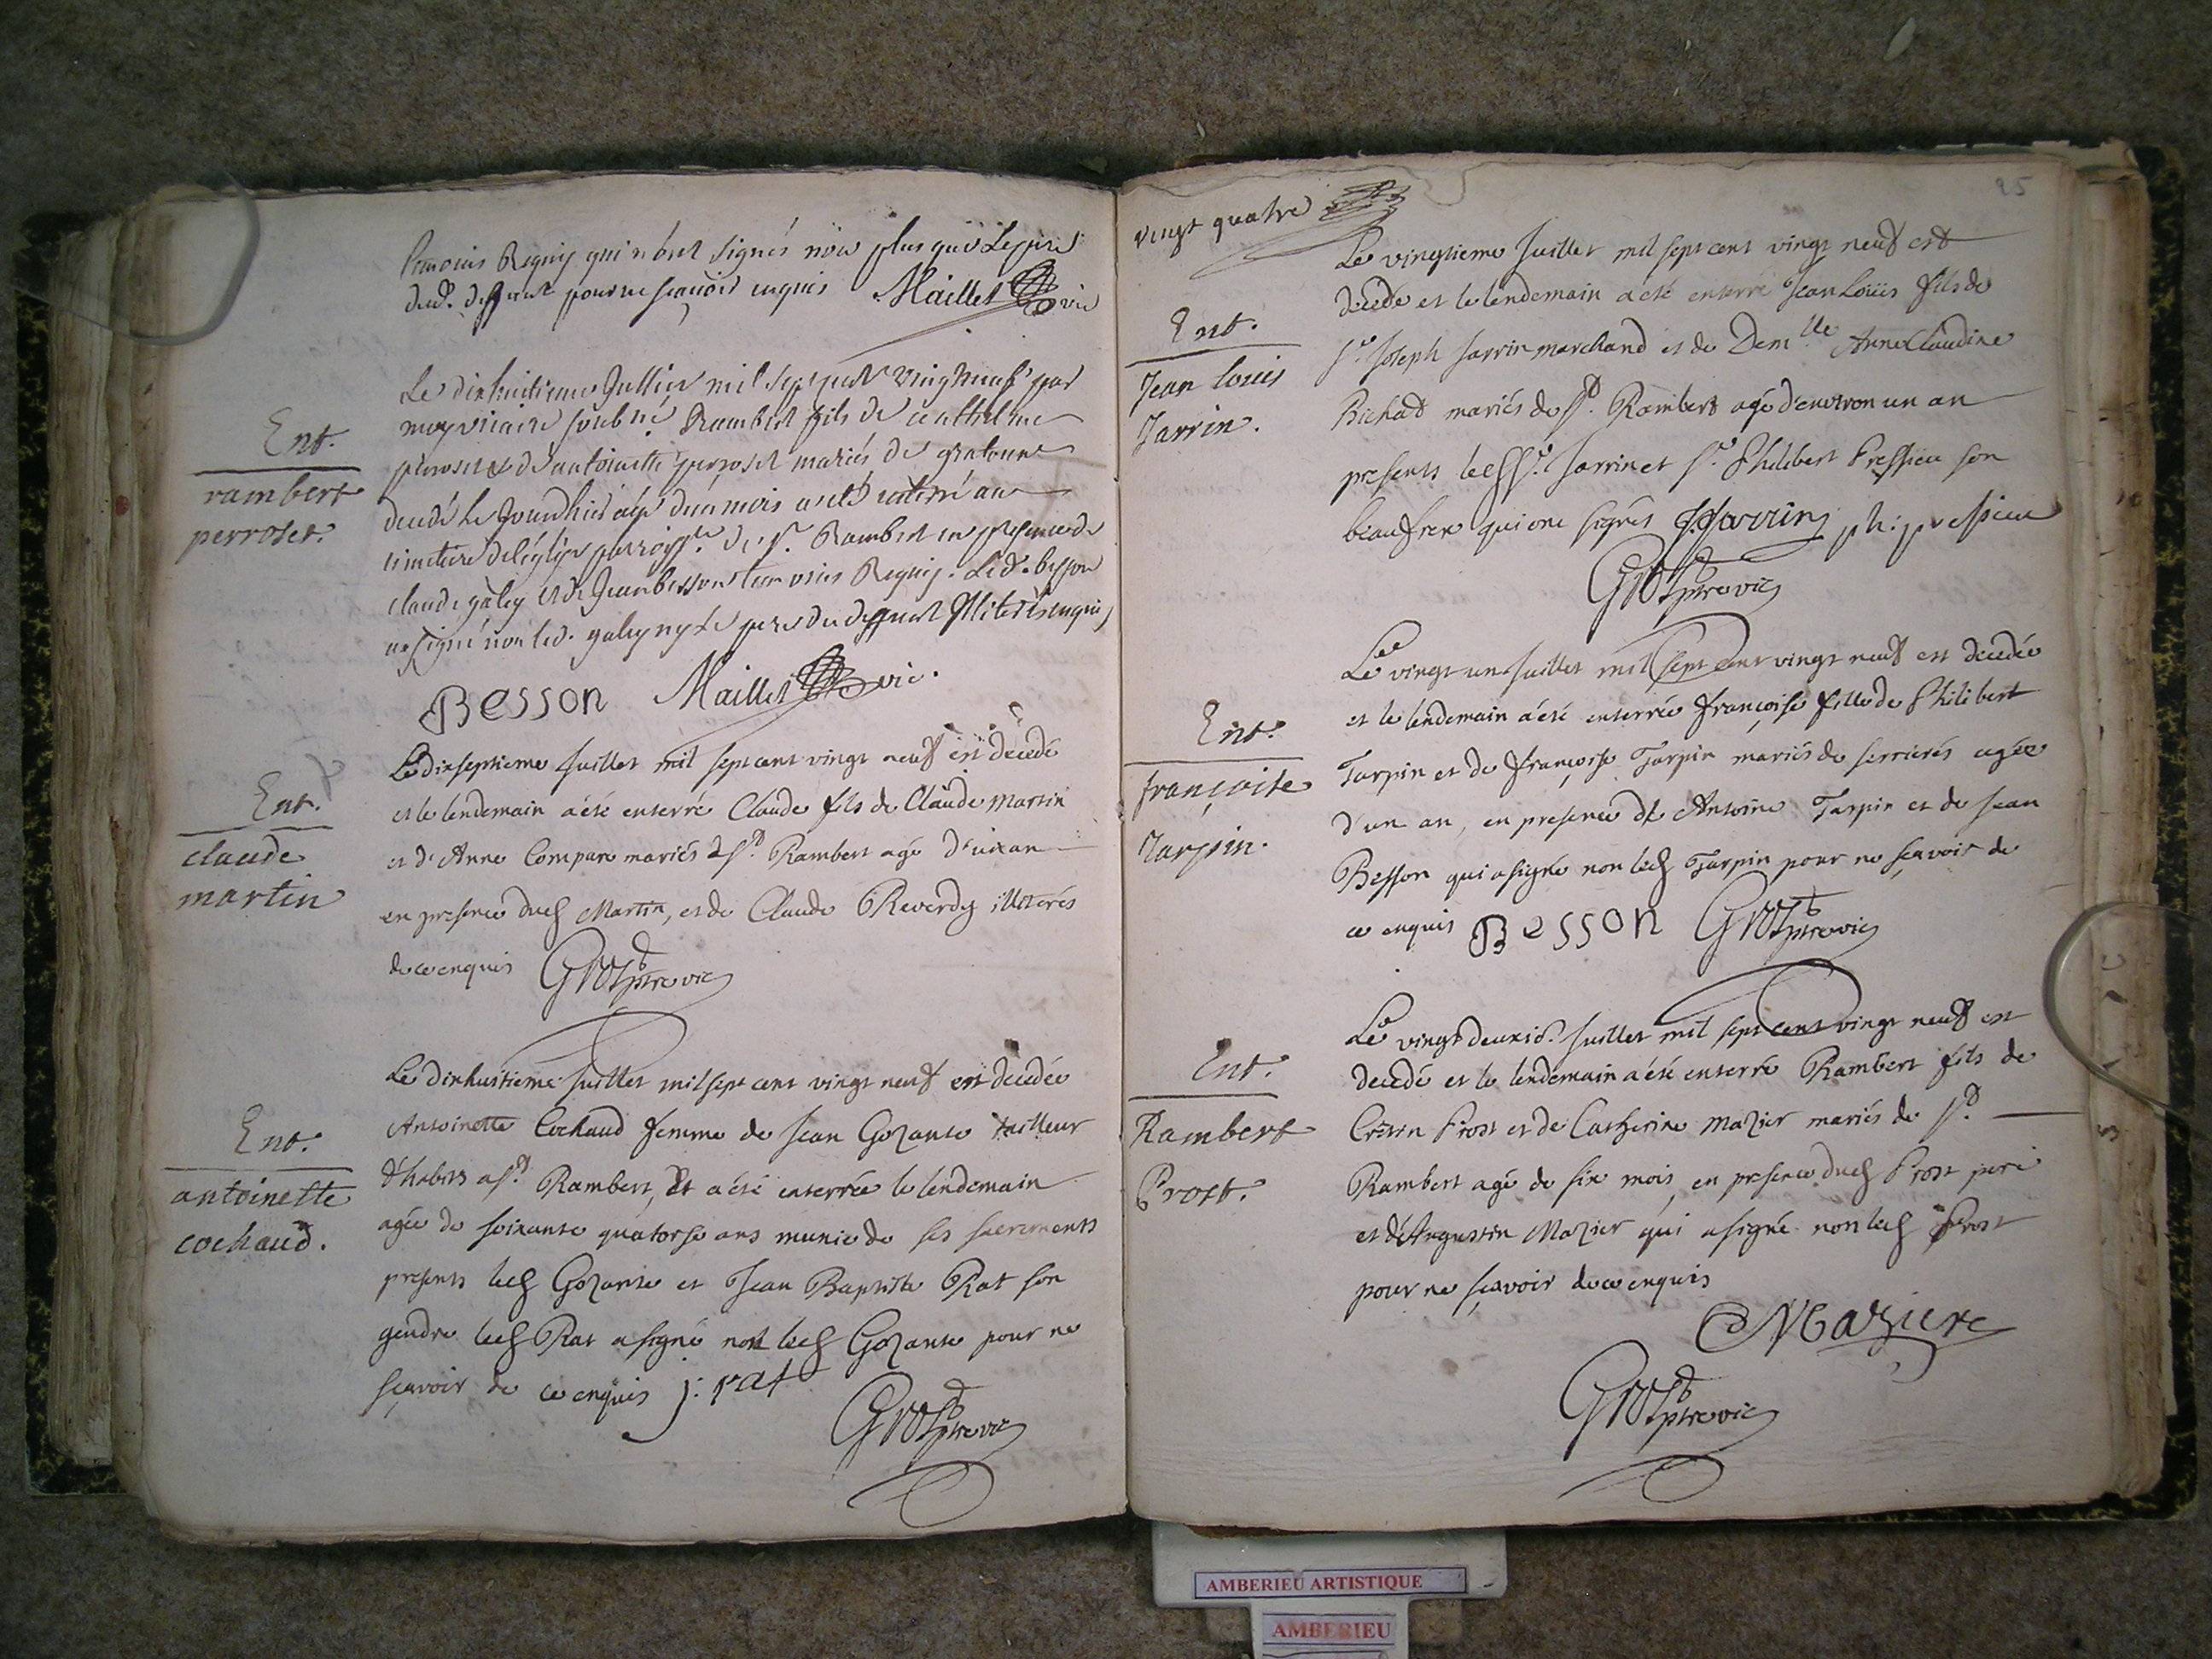 temoins Requis qui n'ont signés non plus que le pere
dud. deffunt pour ne scavoir enquis Maillet vic
Ent.
rambert
perroset.
Le dixhuitieme Juillier mil sept cent vingt neuf par
moy vicaire soubné Rambert fils de
perroset et de antoinette perroset mariés de
decedé le Jourdhier agé d'un mois a eté enterré au
cimetiere de l'eglise parroiss.le de St. Rambert en presence de
claude galey et de Jean besson temoins Requis. Led. besson
a signé non led. galey ny le pere du deffunt illiterés enquis
Besson Maillet vic.
Ent.
claude
martin
Le dixseptieme Juillet mil sept cent vingt neuf est decedé
et le lendemain a été enterré Claude fils de Claude Martin
et d'Anne Compare mariés de St. Rambert agé d'un an
en presence dud Martin, et de Claude Reverdy illiterés
de ce enquis Gros ptre vic
Ent.
antoinette
cochaud.
Le dixhuitieme Juillet mil sept cent vingt neuf est decedée
Antoinette Cochaud femme de Jean Gozante tailleur
d'habits a St. Rambert, et a été enterrée le lendemain
agée de soixante quatorse ans munie de ses sacrements
presents led Gozante et Jean Baptiste Rat son
gendre led Rat a signé non led Gozante pour ne
sçavoir de ce enquis j: rat
Gros ptre vic
vingt quatre
25
Ent.
Jean louis
Jarrin.
Le vingtieme Juillet mil sept cent vingt neuf est
decedé et le lendemain a été enterré Jean Loüis fils de
Sr. Joseph Jarrin marchand et de Dem.lle Anne Claudine
Bichat mariés de St. Rambert agé d'environ un an
presents led Sr. Jarrin et Sr. Philibert Pressieu son
beaufrere qui ont signés J. Jarrin ph: pressieu
Gros ptre vic
Ent.
françoise
Tarpin.
Le vingt un Juillet mil sept cent vingt neuf est decedée
et le lendemain a été enterrée françoise fille de Philibert
Tarpin et de françoise Tarpin mariés de serrieres agée
d'un an, en presence de Antoine Tarpin et de Jean
Besson qui a signé non led Tarpin pour ne sçavoir de
ce enquis Besson Gros ptre vic
Ent.
Rambert
Prost.
Le vingt deuxie. Juillet mil sept cent vingt neuf est
decedé et le lendemain a été enterré Rambert fils de
Prost et de Catherine Mazier mariés de St.
Rambert agé de six mois, en presence dud Prost pere
et d'Augustin Mazier qui a signé non led Prost
pour ne sçavoir de ce enquis
Maziere
Gros ptre vic
AMBERIEU ARTISTIQUE
AMBERIEU